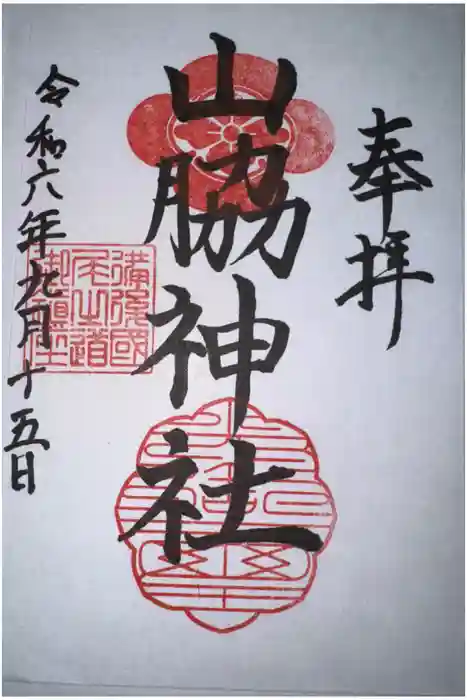 奉拝
山脇神社
令和六年九月十五日
備後國
尾山道
御鎮座